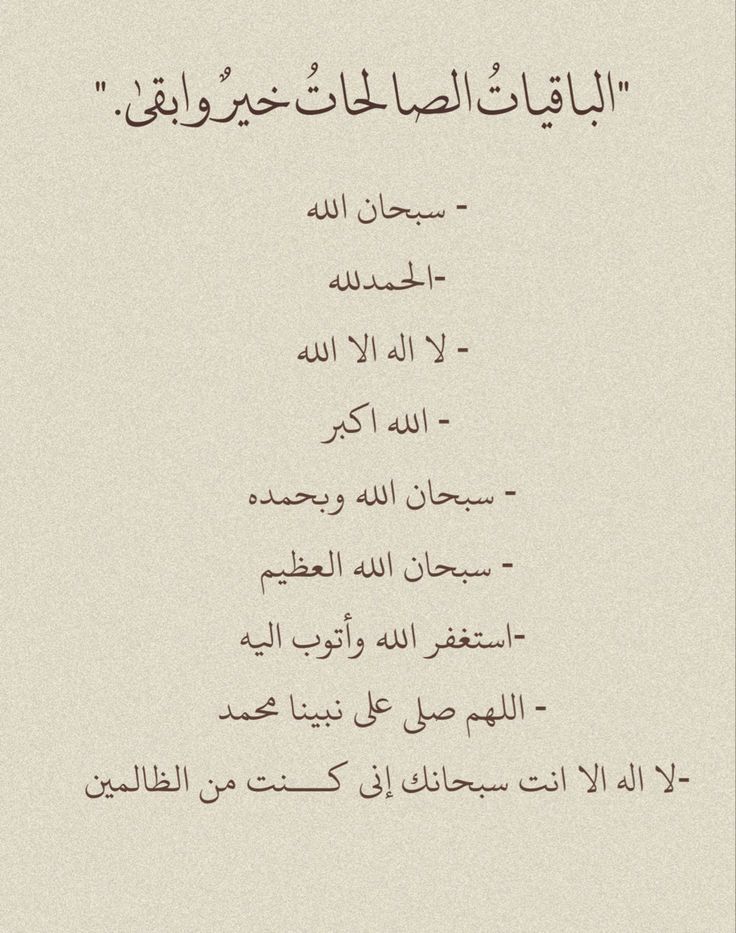 "الباقياتُ الصالحاتُ خيرٌ وابقىٰ."
- سبحان الله
-الحمدلله
- لا اله الا الله
- الله اكبر
- سبحان الله وبحمده
- سبحان الله العظيم
-استغفر الله وأتوب اليه
- اللهم صلى على نبينا محمد
-لا اله الا انت سبحانك إنى كـــنت من الظالمين